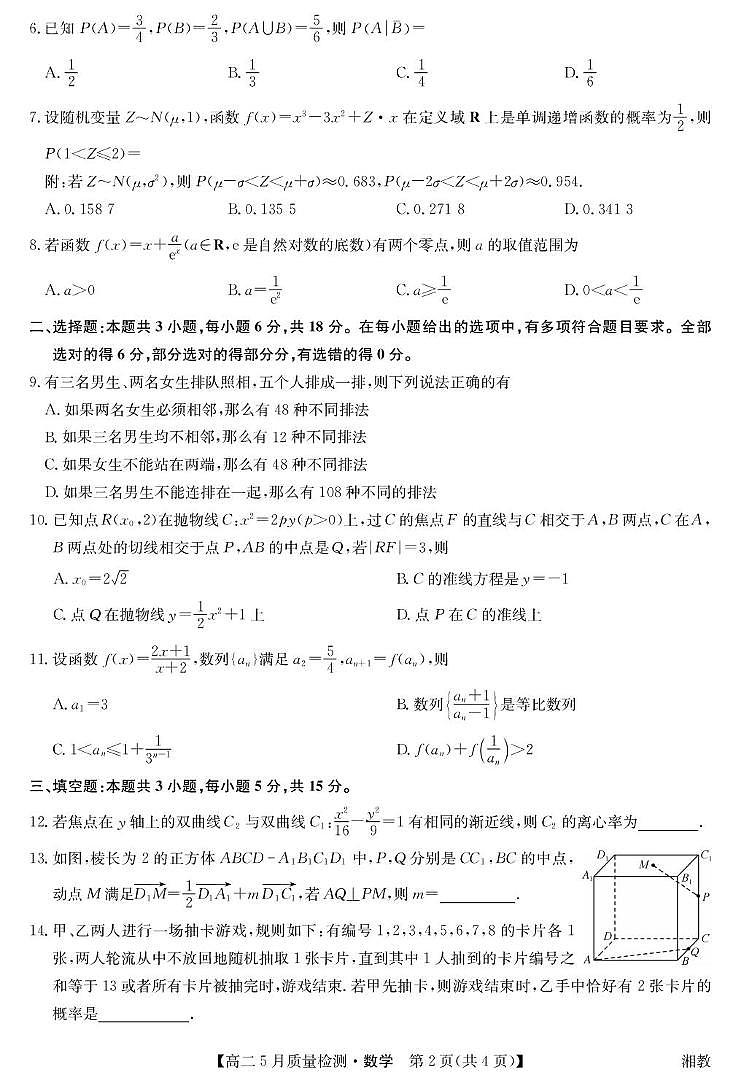 6.已知 P(A)=3/4,P(B)=2/3,P(A∪B)=5/6,则 P(A|B̄)=
A.1/2 B.1/3 C.1/4 D.1/6
7.设随机变量 Z~N(μ,1),函数 f(x)=x³-3x²+Z·x 在定义域 R 上是单调递增函数的概率为1/2,则
P(1<Z≤2)=
附:若 Z~N(μ,σ²),则 P(μ-σ<Z<μ+σ)≈0.683,P(μ-2σ<Z<μ+2σ)≈0.954.
A.0.158 7 B.0.135 5 C.0.271 8 D.0.341 3
8.若函数 f(x)=x+a/eˣ(a∈R,e 是自然对数的底数)有两个零点,则 a 的取值范围为
A.a>0 B.a=1/e² C.a≥1/e D.0<a<1/e
二、选择题:本题共 3 小题,每小题 6 分,共 18 分。在每小题给出的选项中,有多项符合题目要求。全部
选对的得 6 分,部分选对的得部分分,有选错的得 0 分。
9.有三名男生、两名女生排队照相,五个人排成一排,则下列说法正确的有
A.如果两名女生必须相邻,那么有 48 种不同排法
B.如果三名男生均不相邻,那么有 12 种不同排法
C.如果女生不能站在两端,那么有 48 种不同排法
D.如果三名男生不能连排在一起,那么有 108 种不同的排法
10.已知点 R(x₀,2)在抛物线 C:x²=2py(p>0)上,过 C 的焦点 F 的直线与 C 相交于 A,B 两点,C 在 A,
B 两点处的切线相交于点 P,AB 的中点是 Q,若|RF|=3,则
A.x₀=2√2 B.C 的准线方程是 y=-1
C.点 Q 在抛物线 y=1/2x²+1 上 D.点 P 在 C 的准线上
11.设函数 f(x)=(2x+1)/(x+2),数列{aₙ}满足 a₂=5/4,aₙ₊₁=f(aₙ),则
A.a₁=3 B.数列{(aₙ+1)/(aₙ-1)}是等比数列
C.1<aₙ≤1+1/3ⁿ⁻¹ D.f(aₙ)+f(1/aₙ)>2
三、填空题:本题共 3 小题,每小题 5 分,共 15 分。
12.若焦点在 y 轴上的双曲线 C₂ 与双曲线 C₁:x²/16-y²/9=1 有相同的渐近线,则 C₂ 的离心率为________.
13.如图,棱长为 2 的正方体 ABCD-A₁B₁C₁D₁ 中,P,Q 分别是 CC₁,BC 的中点,
动点 M 满足D₁M→=1/2 D₁A₁→+m D₁C₁→,若 AQ⊥PM,则 m=________.
D₁ C₁ M A₁ B₁ P D C Q A B
14.甲、乙两人进行一场抽卡游戏,规则如下:有编号 1,2,3,4,5,6,7,8 的卡片各 1
张,两人轮流从中不放回地随机抽取 1 张卡片,直到其中 1 人抽到的卡片编号之
和等于 13 或者所有卡片被抽完时,游戏结束.若甲先抽卡,则游戏结束时,乙手中恰好有 2 张卡片的
概率是________.
【高二 5 月质量检测·数学 第 2 页(共 4 页)】 湘教